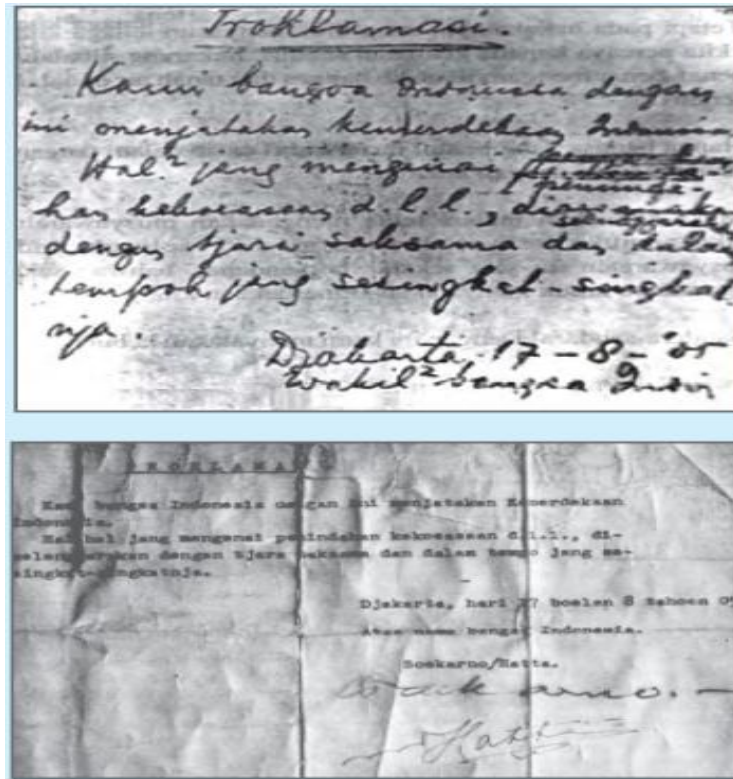 Proklamasi.
Kami bangsa Indonesia dengan
ini menjatakan kemerdekaan Indonesia.
Hal² jang mengenai
peminda-
han kekoeasaan d.l.l.,
dengan tjara saksama dan dalam
tempoh jang sesingkat-singkat
nja.
Djakarta, 17 - 8 - '05
Wakil² bangsa Indon
PROKLAMA
Kami bangsa Indonesia dengan ini menjatakan Kemerdekaan
Indonesia.
Hal-hal jang mengenai pemindahan kekoeasaan d.l.l., di-
selenggarakan dengan tjara saksama dan dalam tempo jang se-
singkat-singkatnja.
Djakarta, hari 17 boelan 8 tahoen 05
Atas nama bangsa Indonesia.
Soekarno/Hatta.
Soekarno.
Hatta